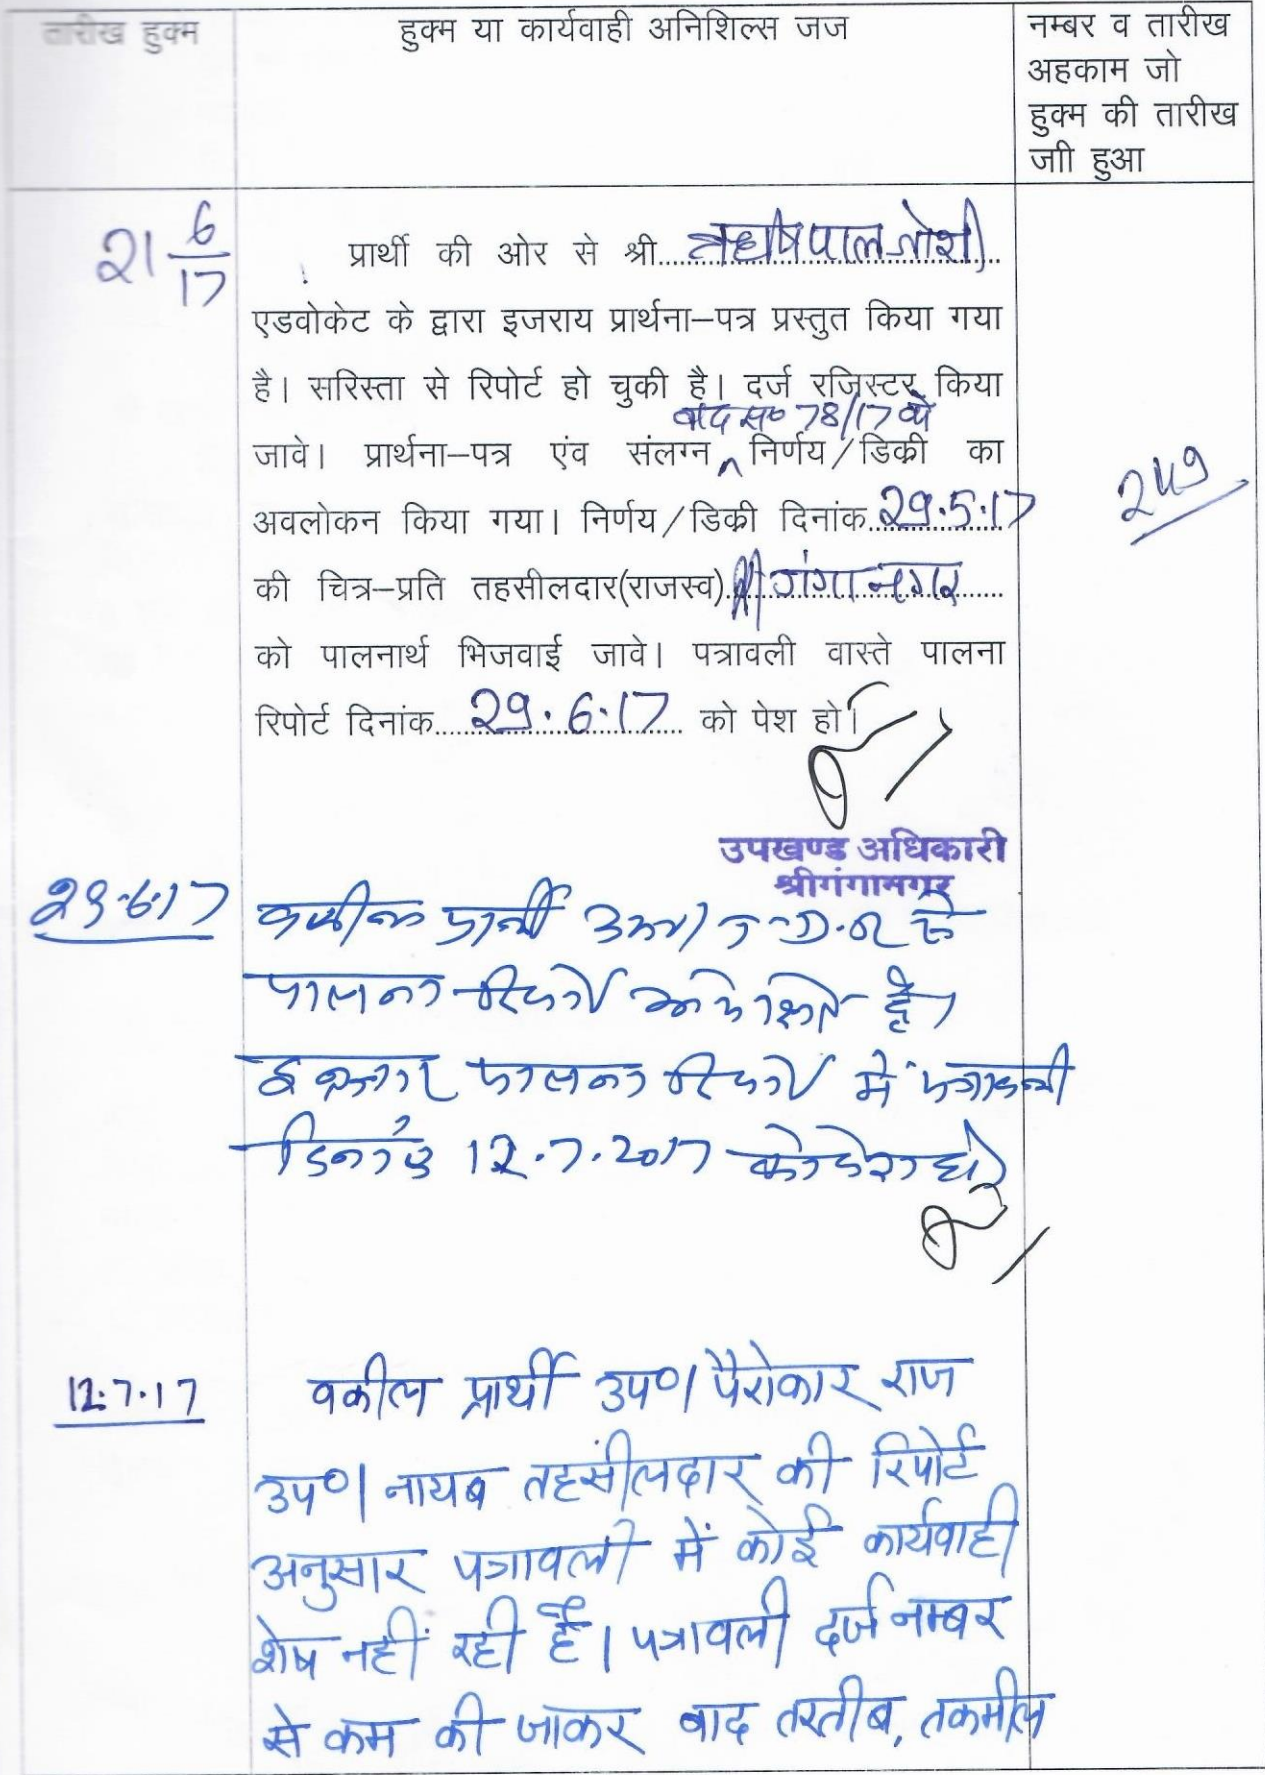 तारीख हुक्म
हुक्म या कार्यवाही अनिशिल्स जज
नम्बर व तारीख
अहकाम जो
हुक्म की तारीख
जाी हुआ
21 6/17
प्रार्थी की ओर से श्री..........पाल जोशी
एडवोकेट के द्वारा इजराय प्रार्थना–पत्र प्रस्तुत किया गया
है। सरिस्ता से रिपोर्ट हो चुकी है। दर्ज रजिस्टर किया
वाद स० 78/17 के
जावे। प्रार्थना–पत्र एंव संलग्न निर्णय/डिकी का
अवलोकन किया गया। निर्णय/डिकी दिनांक 29.5.17
249
की चित्र–प्रति तहसीलदार(राजस्व) श्री गंगानगर
को पालनार्थ भिजवाई जावे। पत्रावली वास्ते पालना
रिपोर्ट दिनांक 29.6.17 को पेश हो।
उपखण्ड अधिकारी
श्रीगंगानगर
29.6.17
वकील प्रार्थी उप०। से
पालना रिपोर्ट अपेक्षित है।
इन्तजार पालना रिपोर्ट में पत्रावली
दिनांक 12.7.2017 को पेश हो।
12.7.17
वकील प्रार्थी उप०। पैरोकार राज
उप०। नायब तहसीलदार की रिपोर्ट
अनुसार पत्रावली में कोई कार्यवाही
शेष नहीं रही है। पत्रावली दर्ज नम्बर
से कम की जाकर बाद तरतीब, तकमील